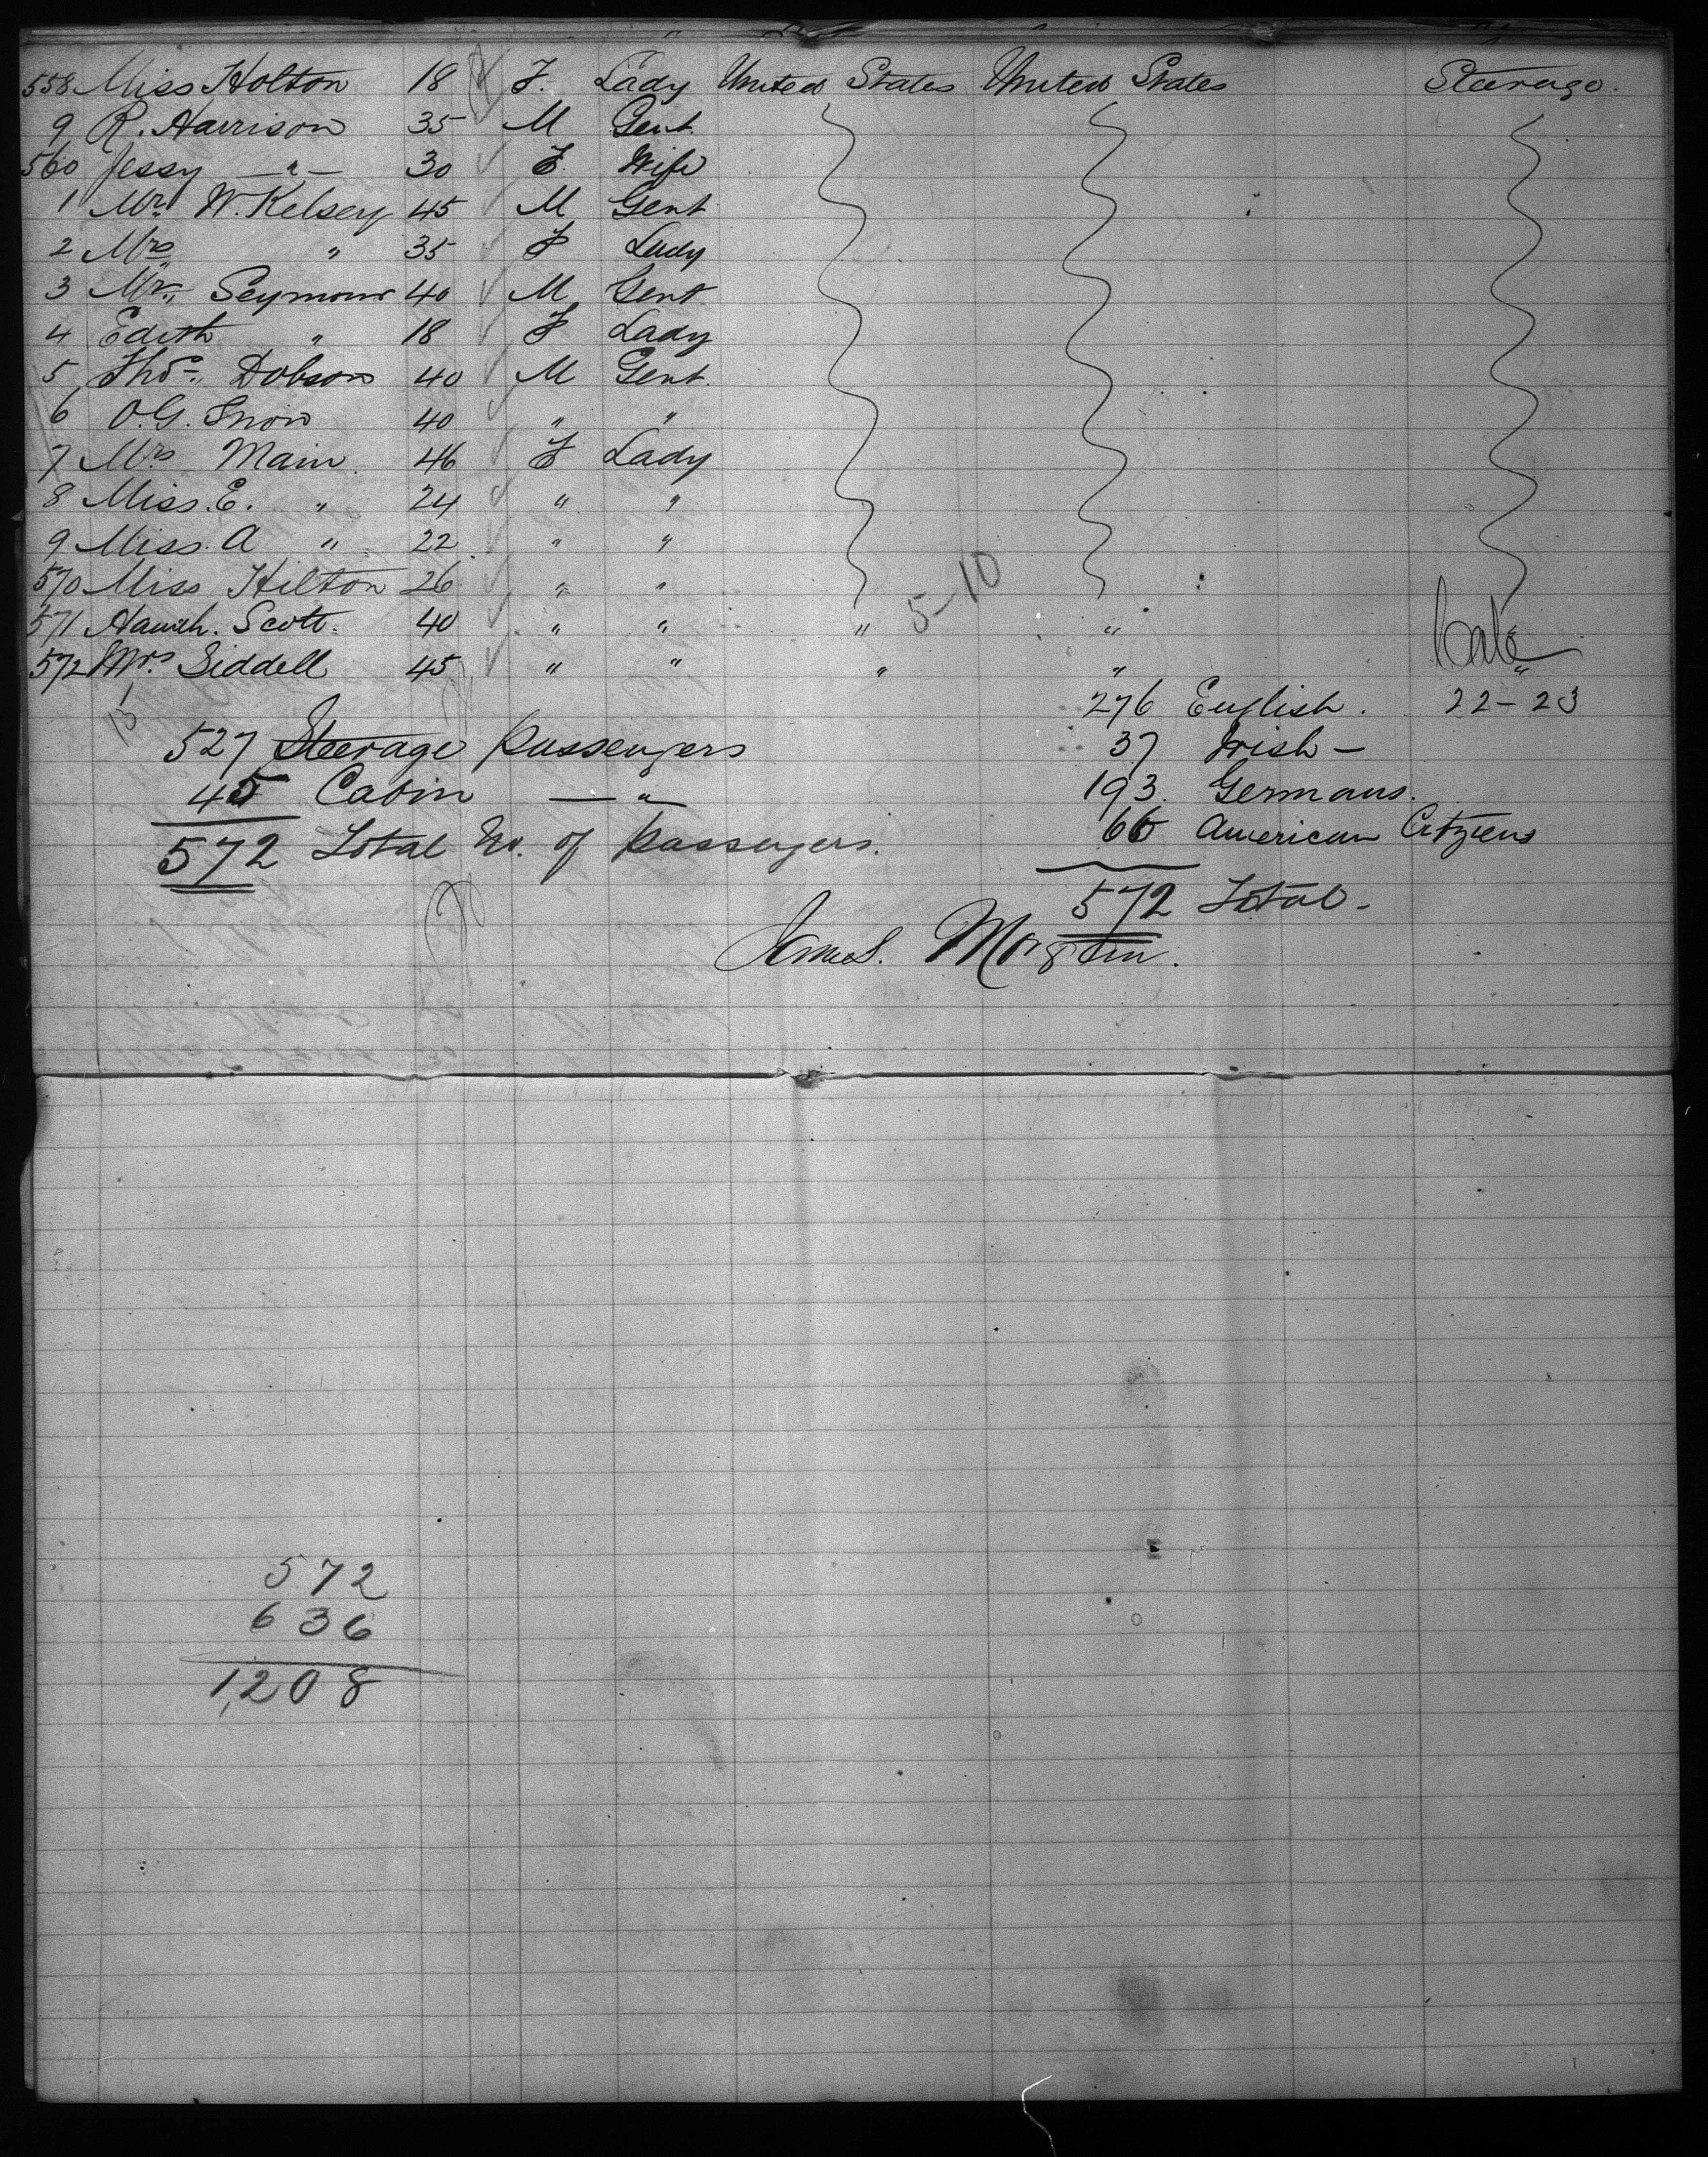 558 Miss Holton 18 F. Lady United States United States Steerage.
9 R. Harrison 35 M Gent.
560 Jessy —"— 30 F. Wife
1 Mr. W. Kelsey 45 M Gent
2 Mrs " 35 F Lady
3 Mr. Seymour 40 M Gent
4 Edith " 18 F Lady
5 Thos. Dobson 40 M Gent.
6 O.G. Snow 40 " "
7 Mrs Main 46 F Lady
8 Miss. E. " 24 " "
9 Miss. A " 22 " "
570 Miss Hilton 26 " "
5-10
571 Hannh. Scott. 40 " " " "
572 Mrs. Siddell 45 " " " " "
276 English. 22-23
527 Steerage passengers
37 Irish —
45 Cabin —"—
193. Germans.
572 Total No. of passengers.
66 American Citizens
572 Total.
James. Morgan.
572
636
1,208